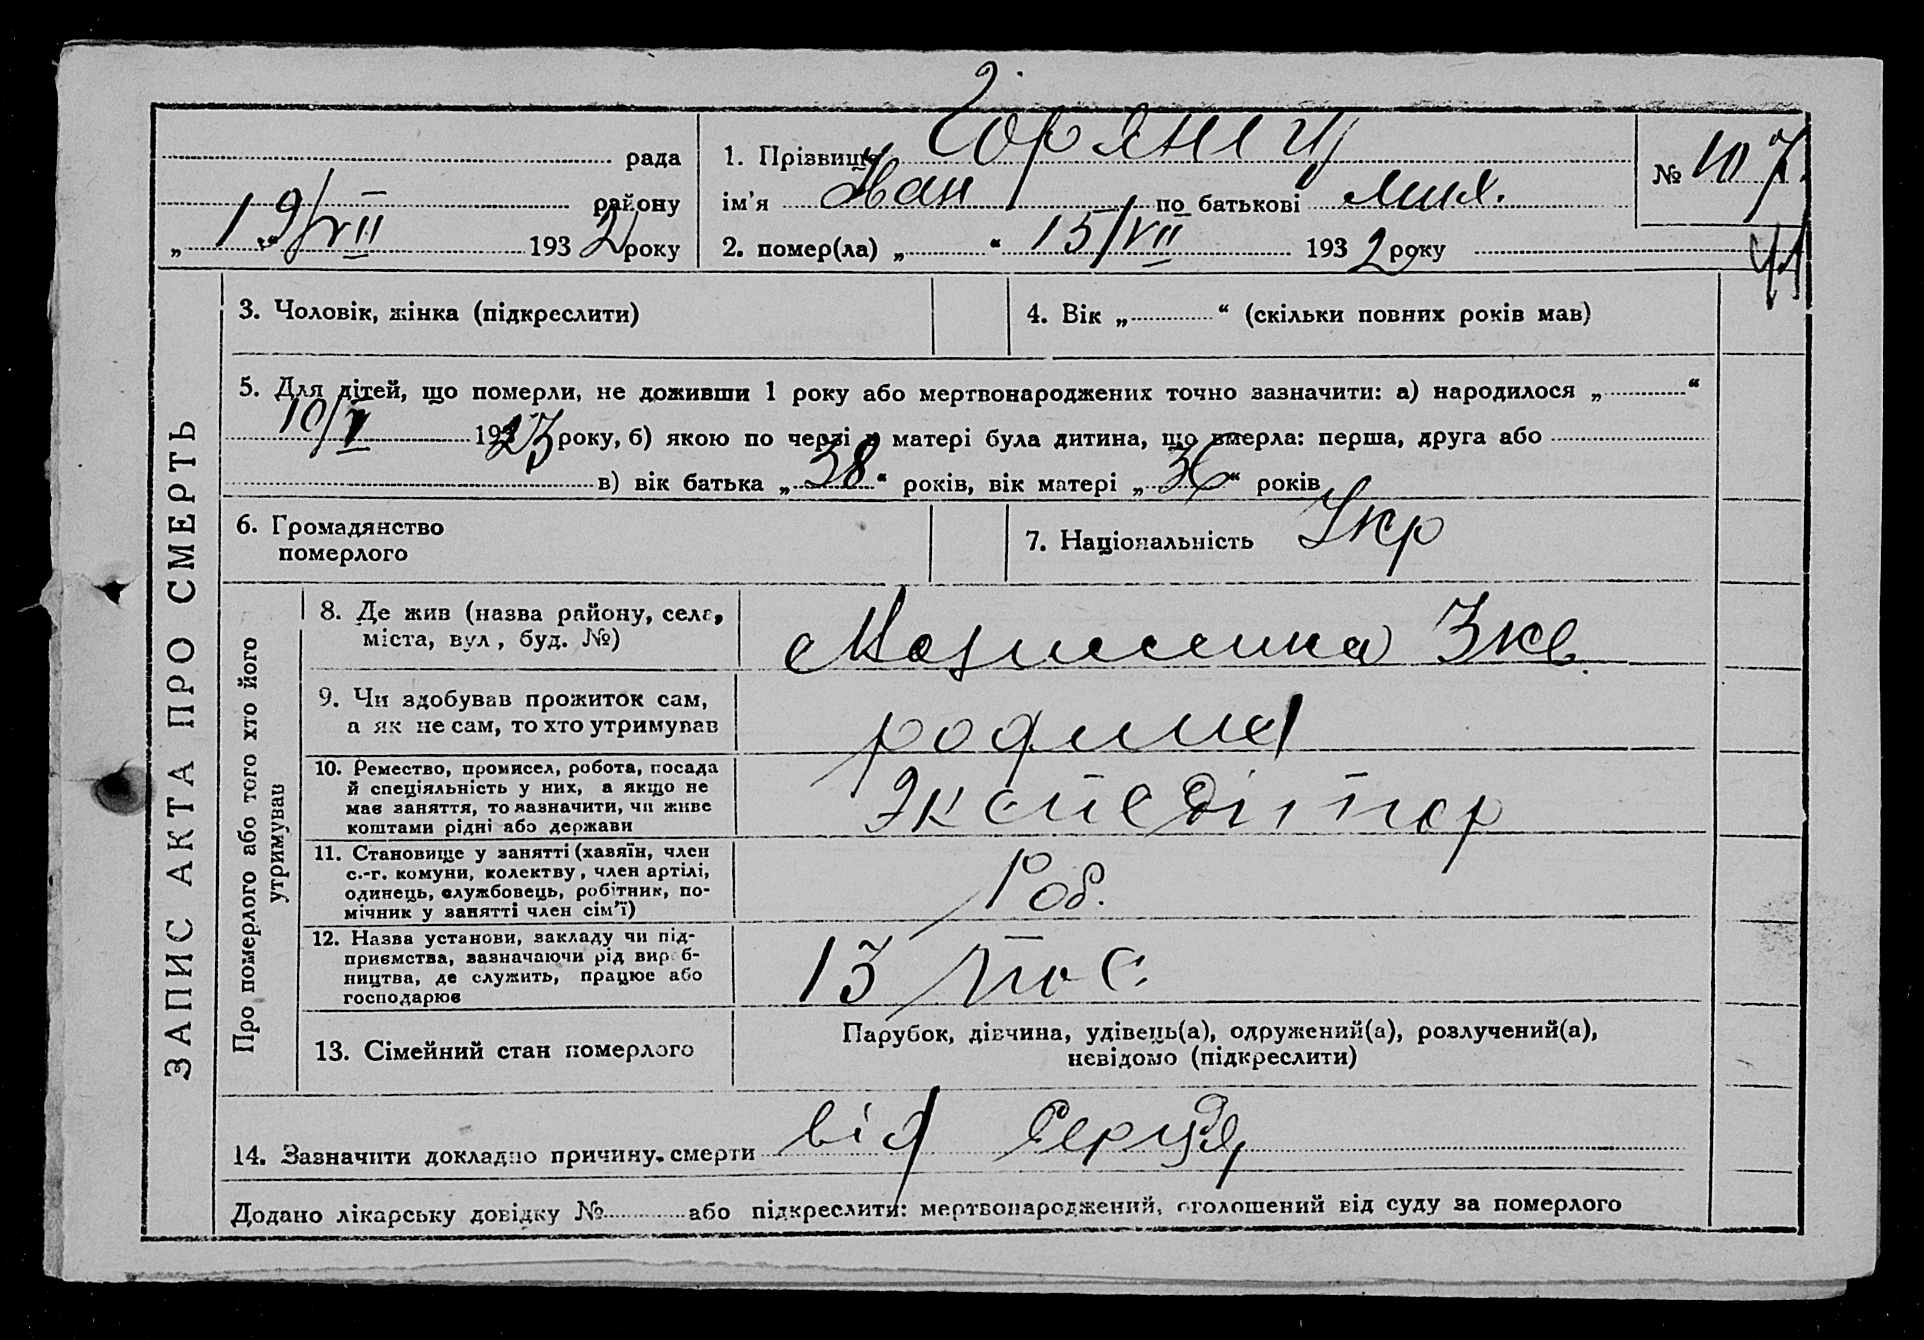 ЗАПИС АКТА ПРО СМЕРТЬ
рада
району
„ 19/VII 1932 року
1. Прізвище Горянец
ім'я Иван по батькові Мих.
2. помер(ла) „ “ 15/VII 1932 року
№ 107.
3. Чоловік, жінка (підкреслити)
4. Вік „ “ (скільки повних років мав)
5. Для дітей, що померли, не доживши 1 року або мертвонароджених точно зазначити: а) народилося „ “
10/I 1923 року, б) якою по черзі у матері була дитина, що вмерла: перша, друга або
в) вік батька „38“ років, вік матері „36“ років
6. Громадянство померлого
7. Національність Укр
Про померлого або того хто його утримував
8. Де жив (назва району, села,
міста, вул, буд. №)
9. Чи здобував прожиток сам,
а як не сам, то хто утримував
родина
10. Ремество, промисел, робота, посада
й спеціяльність у них, а якщо не
має заняття, то зазначити, чи живе
коштами рідні або держави
Экспедітор
11. Становище у занятті (хазяїн, член
с.-г. комуни, колективу, член артілі,
одинець, службовець, робітник, по-
мічник у занятті член сім'ї)
Роб.
12. Назва установи, закладу чи під-
приємства, зазначаючи рід вироб-
ництва, де служить, працює або
господарює
13
13. Сімейний стан померлого
Парубок, дівчина, удівець(а), одружений(а), розлучений(а),
невідомо (підкреслити)
14. Зазначити докладно причину смерти від серця
Додано лікарську довідку № або підкреслити: мертвонароджений, оголошений від суду за померлого